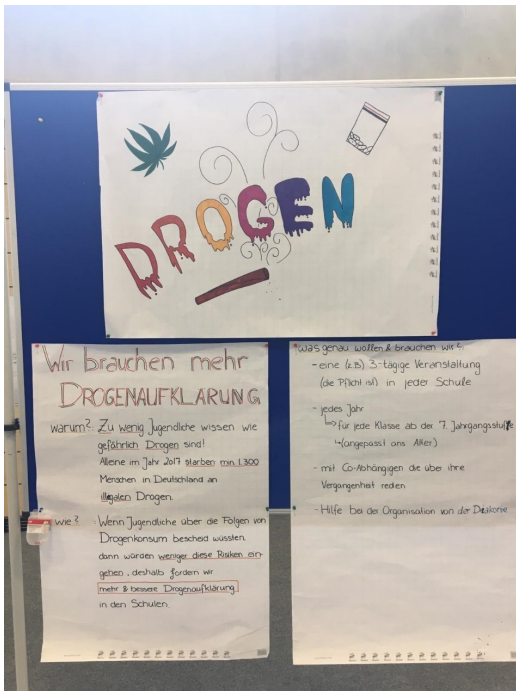 DROGEN
Wir brauchen mehr
DROGENAUFKLÄRUNG
warum? Zu wenig Jugendliche wissen wie
gefährlich Drogen sind!
Alleine im Jahr 2017 starben min. 1.300
Menschen in Deutschland an
illegalen Drogen.
wie? Wenn Jugendliche über die Folgen von
Drogenkonsum bescheid wüssten,
dann würden weniger diese Risiken ein-
gehen, deshalb fordern wir
mehr & bessere Drogenaufklärung
in den Schulen.
was genau wollen & brauchen wir?
- eine (z.B) 3-tägige Veranstaltung
(die Pflicht ist) in jeder Schule
- jedes Jahr
↳ für jede Klasse ab der 7. Jahrgangsstufe
↳ (angepasst ans Alter)
- mit Co-Abhängigen die über ihre
Vergangenheit reden
- Hilfe bei der Organisation von der Diakonie